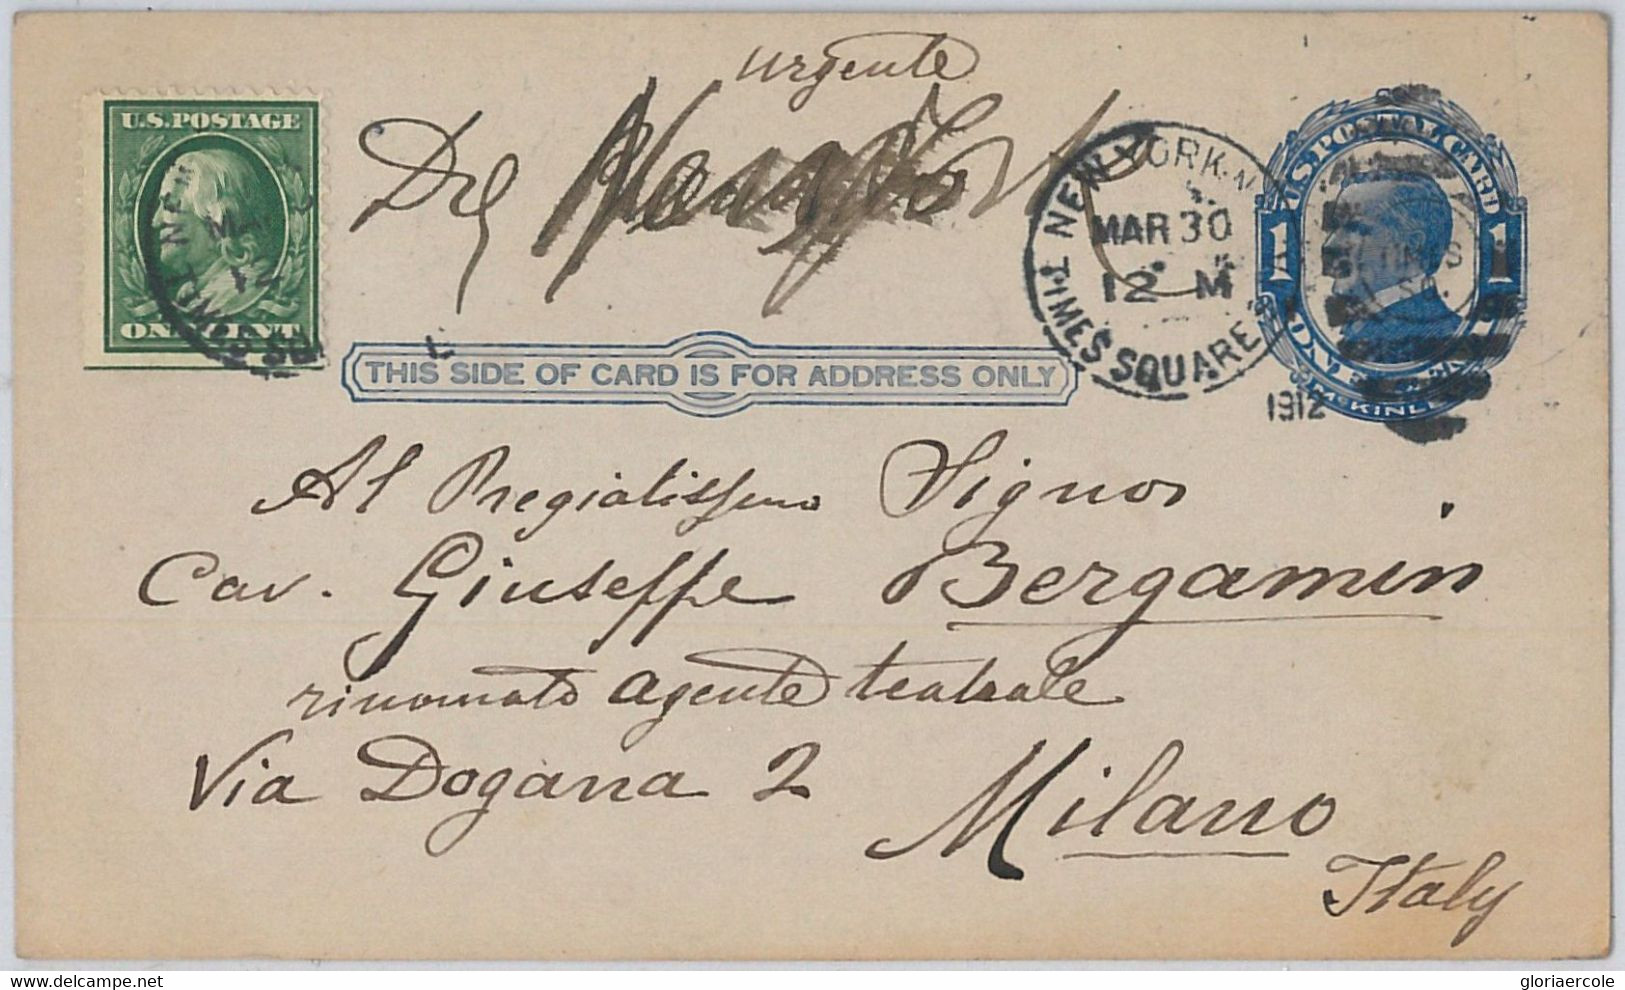 urgente
U.S. POSTAGE
ONE CENT
NEW YORK, N.
MAR 30
12 M
TIMES SQUARE
1912
U.S. POSTAL CARD
1 1
McKINLEY
THIS SIDE OF CARD IS FOR ADDRESS ONLY
Al Pregiatissimo Signor
Cav. Giuseppe Bergamin
rinomato agente teatrale
Via Dogana 2
Milano
Italy
www.delcampe.net
gloriaercole